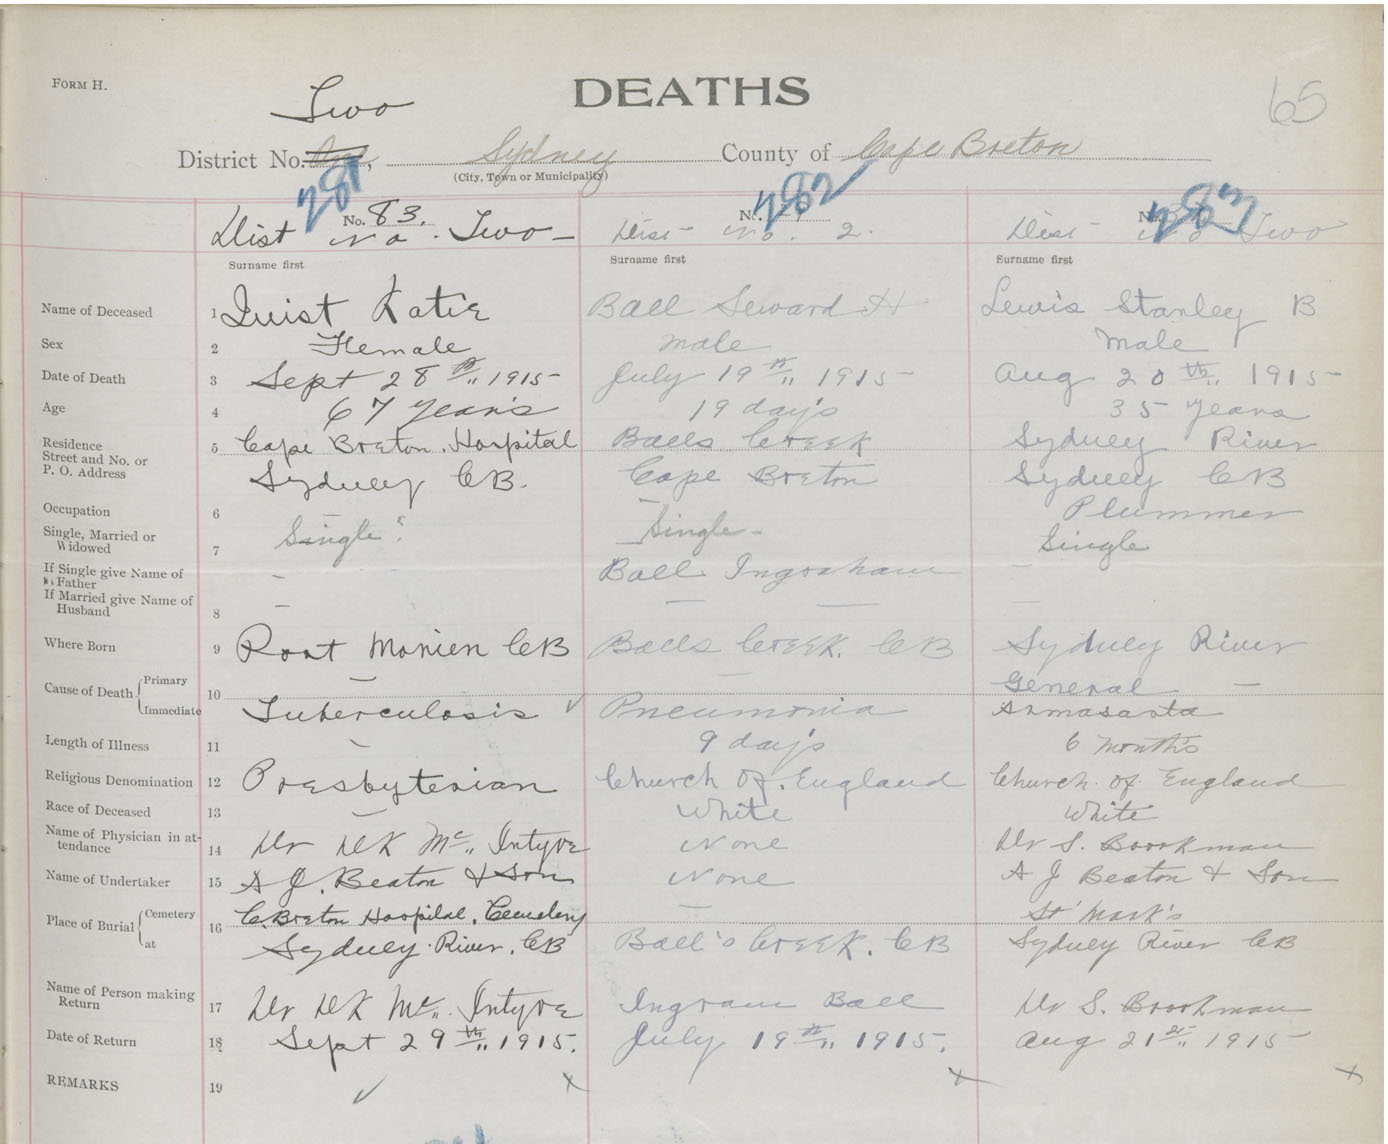 FORM H.
DEATHS
65
Two
District No. One, Sydney County of Cape Breton
(City, Town or Municipality)
281 282 283
No. 83. No. No.
Dist No. Two Dist No. 2. Dist No Two
Surname first Surname first Surname first
Name of Deceased 1 Quist Katie Ball Seward H Lewis Stanley B
Sex 2 Female male Male
Date of Death 3 Sept 28th 1915 July 19th 1915 Aug 20th 1915
Age 4 67 years 19 days 35 years
Residence
Street and No. or
P. O. Address
5 Cape Breton Hospital Balls Creek Sydney River
Sydney CB. Cape Breton Sydney CB
Occupation 6 — — Plummer
Single, Married or
Widowed
7 Single? Single - Single
If Single give Name of
Father
- Ball Ingraham -
If Married give Name of
Husband
8 — — —
Where Born 9 Port Morien CB Balls Creek. CB Sydney River
Cause of Death Primary 10 — — General —
Immediate Tuberculosis ✓ Pneumonia
Length of Illness 11 - 9 days 6 months
Religious Denomination 12 Presbyterian Church of England Church of England
Race of Deceased 13 - White White
Name of Physician in at-
tendance
14 Dr DK Mc Intyre None Dr S. Brookman
Name of Undertaker 15 A J. Beaton & Son None A J Beaton & Son
Place of Burial Cemetery 16 C. Breton Hospital. Cemetery — St Mark's
at Sydney River. CB Ball's Creek. CB Sydney River CB
Name of Person making
Return
17 Dr DK Mc Intyre Ingram Ball Dr S. Brookman
Date of Return 18 Sept 29th 1915. July 19th 1915. Aug 21st 1915
REMARKS 19 ✓ x x x